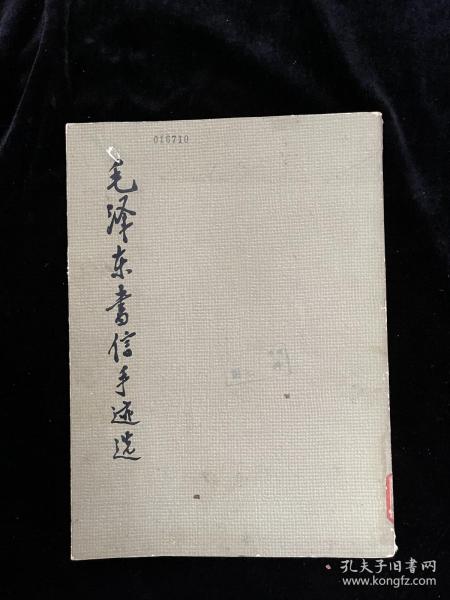 016710
毛泽东书信手迹选
孔夫子旧书网
www.kongfz.com